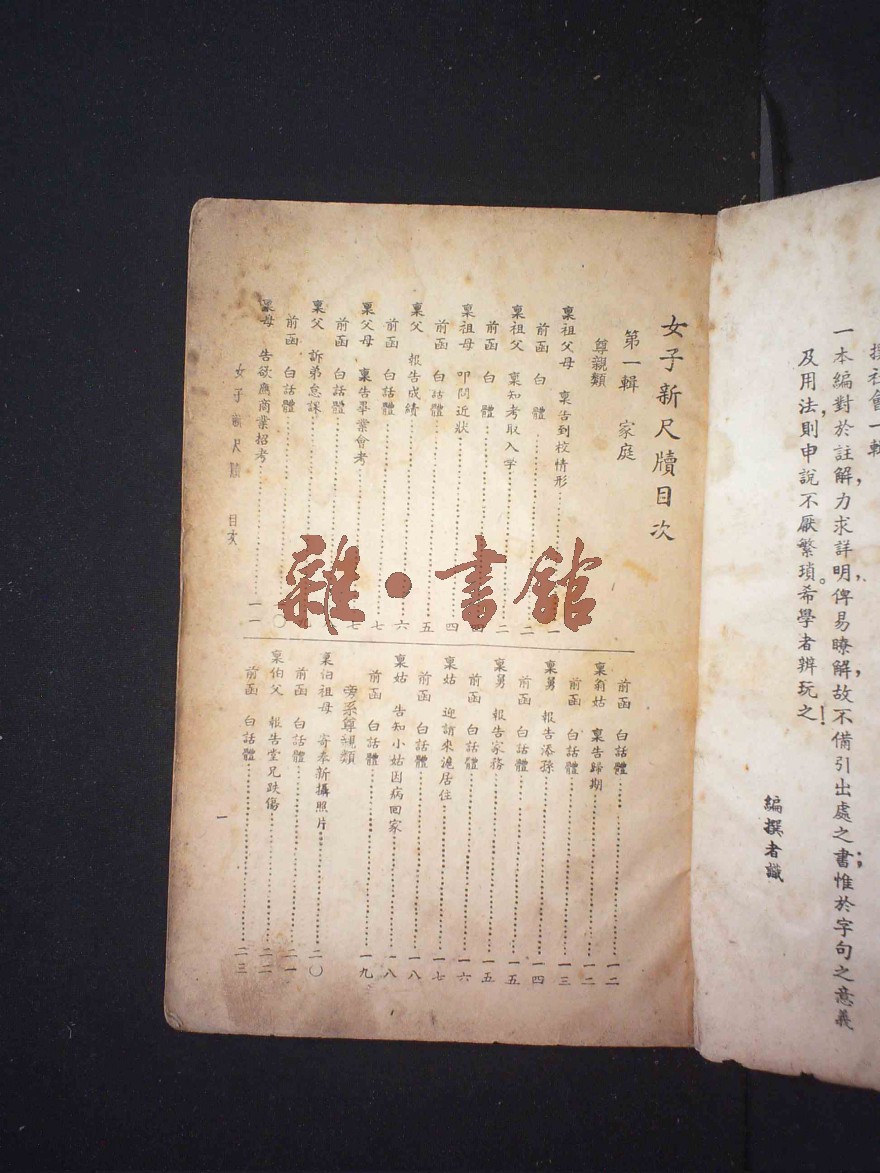 一本編對於註解，力求詳明，俾易瞭解，故不備引出處之書；惟於字句之意義
及用法，則申說不厭繁瑣。希學者辨玩之！
編撰者識
女子新尺牘目次
第一輯　家庭
尊親類
稟祖父母　稟告到校情形……一
前函　白　體……二
稟祖父　稟知考取入學……二
前函　白　體……四
稟祖母　叩問近狀……四
前函　白話體……五
稟父　報告成績……六
前函　白話體……七
稟父母　稟告畢業會考……七
前函　白話體
稟父　訴弟怠課
前函　白話體……〇
稟母　告欲應商業招考……一一
前函　白話體……一二
稟翁姑　稟告歸期……一二
前函　白話體……一三
稟舅　報告添孫……一四
前函　白話體……一五
稟舅　報告家務……一五
前函　白話體……一六
稟姑　迎請來滬居住……一七
前函　白話體……一八
稟姑　告知小姑因病回家……一八
前函　白話體……一九
旁系尊親類
稟伯祖母　寄奉新攝照片……二〇
前函　白話體……二一
稟伯父　報告堂兄跌傷……二二
前函　白話體……二三
女子新尺牘　目次
一
雜·書館